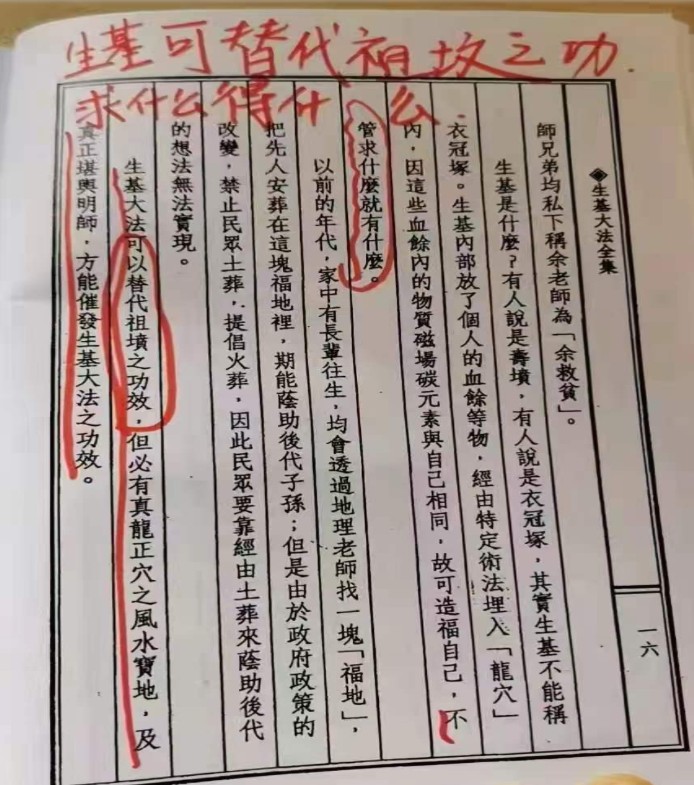 生基可替代祖坟之功.
求什么得什么.
◈生基大法全集
一六
師兄弟均私下稱余老師為「余救貧」。
生基是什麼？有人說是壽墳，有人說是衣冠塚，其實生基不能稱
衣冠塚。生基內部放了個人的血餘等物，經由特定術法埋入「龍穴」
內，因這些血餘內的物質磁場碳元素與自己相同，故可造福自己，不
管求什麼就有什麼。
以前的年代，家中有長輩往生，均會透過地理老師找一塊「福地」，
把先人安葬在這塊福地裡，期能蔭助後代子孫；但是由於政府政策的
改變，禁止民眾土葬，提倡火葬，因此民眾要靠經由土葬來蔭助後代
的想法無法實現。
生基大法可以替代祖墳之功效，但必有真龍正穴之風水寶地，及
真正堪輿明師，方能催發生基大法之功效。